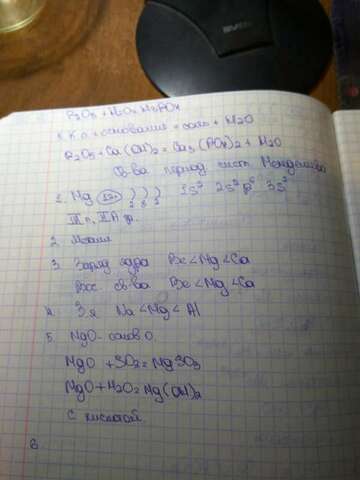 P2O5 + H2O = H3PO4
+ основание = соль + H2O
P2O5 + Ca(OH)2 = Ca3(PO4)2 + H2O
Св-ва период сист. Менделеева
1. Mg +12 ) ) ) 1s² 2s² p⁶ 3s²
2 8 2
III п, II A гр.
2. Металл
3. Заряд ядра Be < Mg < Ca
Вос. св-ва Be < Mg < Ca
4. Na < Mg < Al
5. MgO - основ O.
MgO + SO2 = MgSO3
MgO + H2O = Mg(OH)2
с кислотой.
6